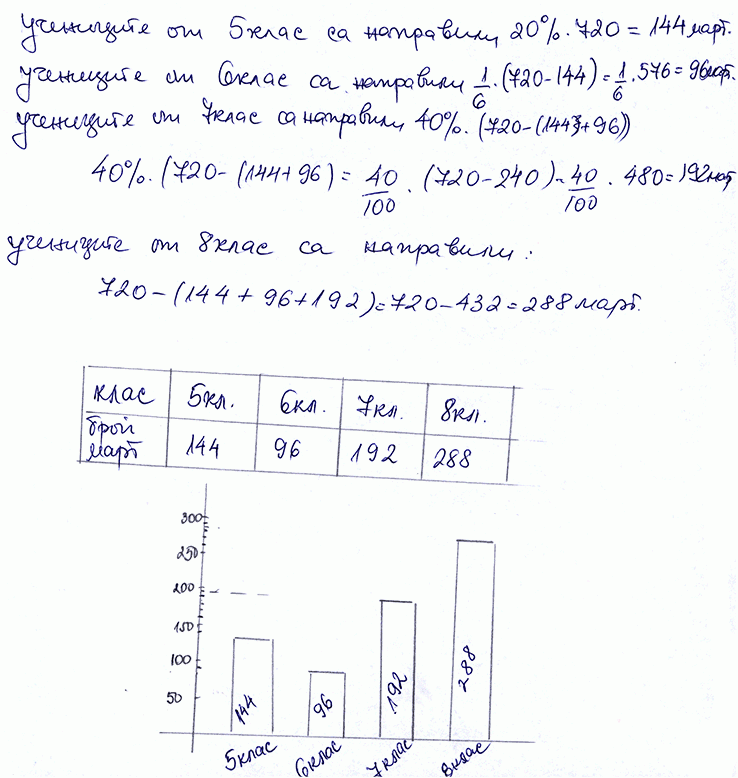 учениците от 5клас са направили 20%.720 = 144март.
учениците от 6клас са направили 1/6.(720-144) = 1/6.576 = 96март.
учениците от 7клас са направили 40%.(720-(144+96))
40%.(720-(144+96) = 40/100.(720-240) = 40/100.480 = 192март
учениците от 8клас са направили:
720-(144+96+192) = 720-432 = 288март.
клас 5кл. 6кл. 7кл. 8кл.
брой март 144 96 192 288
300
250
200
150
100
50
144 96 192 288
5клас 6клас 7клас 8клас